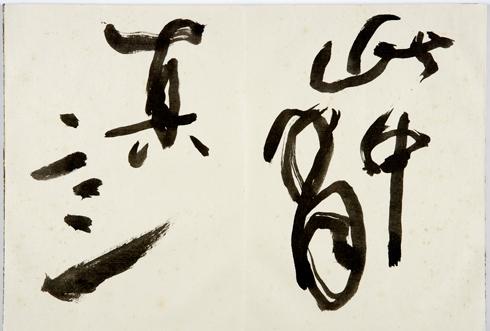 此中有
真意